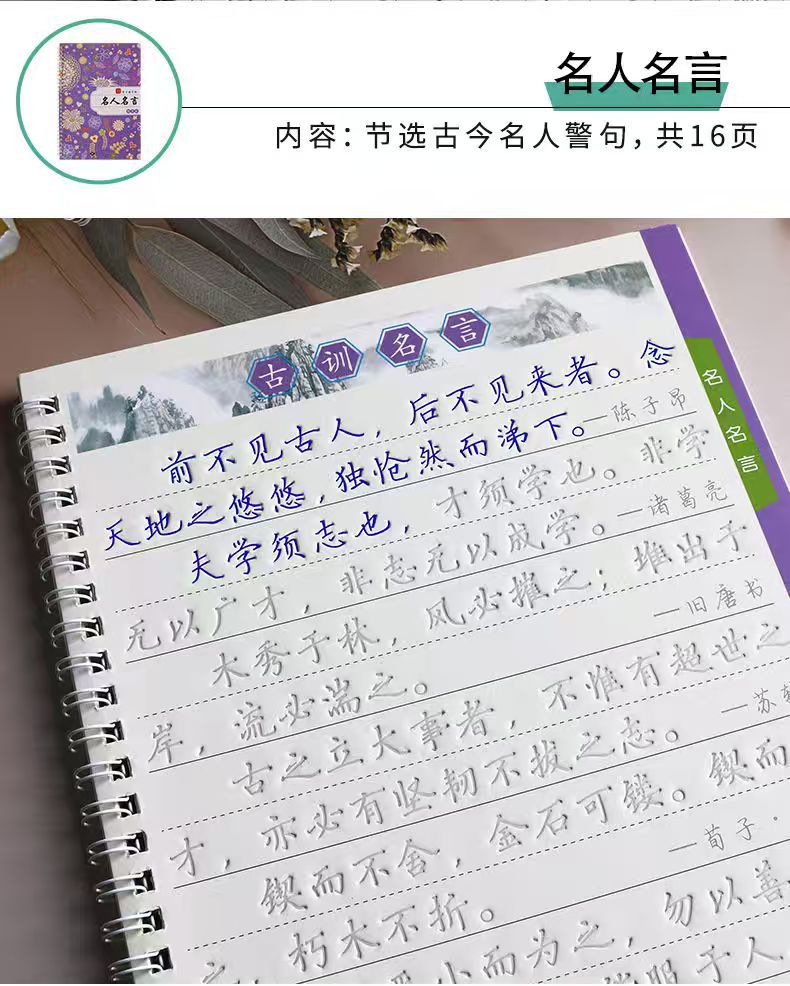 名人名言
名人名言
内容：节选古今名人警句，共16页
古训名言
前不见古人，后不见来者。念
天地之悠悠，独怆然而涕下。
—陈子昂
夫学须志也，才须学也。非学
无以广才，非志无以成学。
—诸葛亮
木秀于林，风必摧之；堆出于
岸，流必湍之。
—旧唐书
古之立大事者，不惟有超世之
才，亦必有坚韧不拔之志。
—苏轼
锲而不舍，金石可镂。锲而
，朽木不折。
—荀子·
小而为之，勿以善
服于人
名人名言